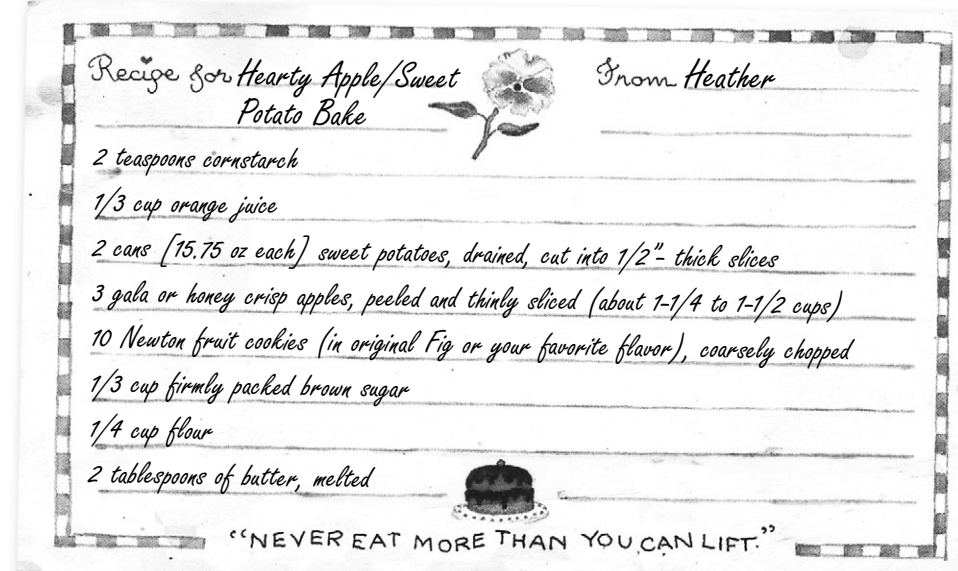 Recipe for Hearty Apple/Sweet
Potato Bake
From Heather
2 teaspoons cornstarch
1/3 cup orange juice
2 cans [15.75 oz each] sweet potatoes, drained, cut into 1/2"- thick slices
3 gala or honey crisp apples, peeled and thinly sliced (about 1-1/4 to 1-1/2 cups)
10 Newton fruit cookies (in original Fig or your favorite flavor), coarsely chopped
1/3 cup firmly packed brown sugar
1/4 cup flour
2 tablespoons of butter, melted
"NEVER EAT MORE THAN YOU CAN LIFT."